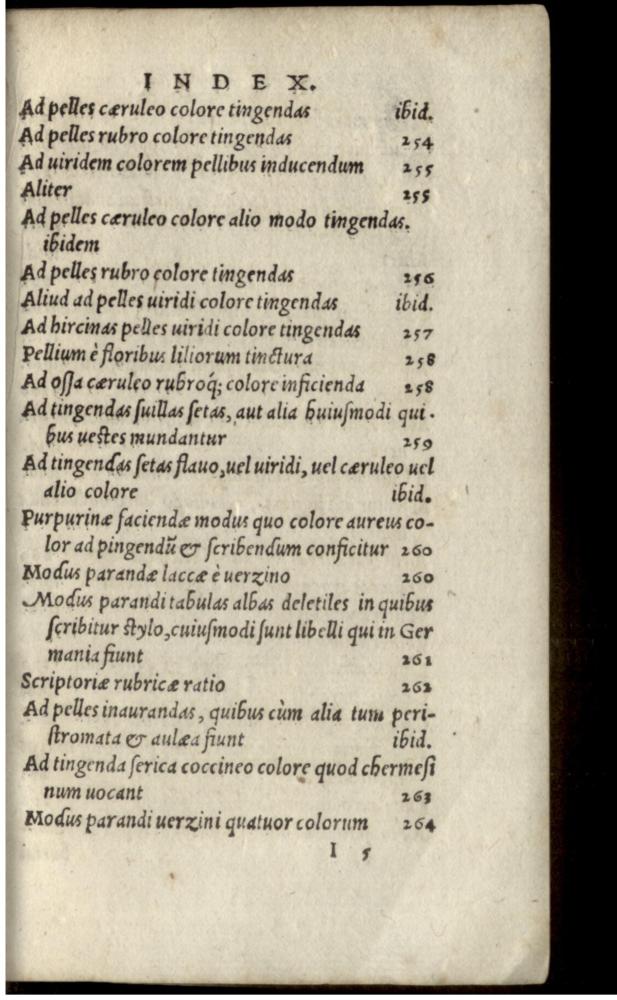 INDEX.
Ad pelles cæruleo colore tingendas ibid.
Ad pelles rubro colore tingendas 254
Ad uiridem colorem pellibus inducendum 255
Aliter 255
Ad pelles cæruleo colore alio modo tingendas.
ibidem
Ad pelles rubro colore tingendas 256
Aliud ad pelles uiridi colore tingendas ibid.
Ad hircinas pelles uiridi colore tingendas 257
Pellium è floribus liliorum tinctura 258
Ad oſſa cæruleo rubroq́; colore inficienda 258
Ad tingendas ſuillas ſetas, aut alia huiuſmodi qui-
bus ueſtes mundantur 259
Ad tingendas ſetas flauo, uel uiridi, uel cæruleo uel
alio colore ibid.
Purpurinæ faciendæ modus quo colore aureus co-
lor ad pingendū & ſcribendum conficitur 260
Modus parandæ laccæ è uerzino 260
Modus parandi tabulas albas deletiles in quibus
ſcribitur ſtylo, cuiuſmodi ſunt libelli qui in Ger
mania fiunt 261
Scriptoriæ rubricæ ratio 262
Ad pelles inaurandas, quibus cùm alia tum peri-
ſtromata & aulæa fiunt ibid.
Ad tingenda ſerica coccineo colore quod chermeſi
num uocant 263
Modus parandi uerzini quatuor colorum 264
I 5